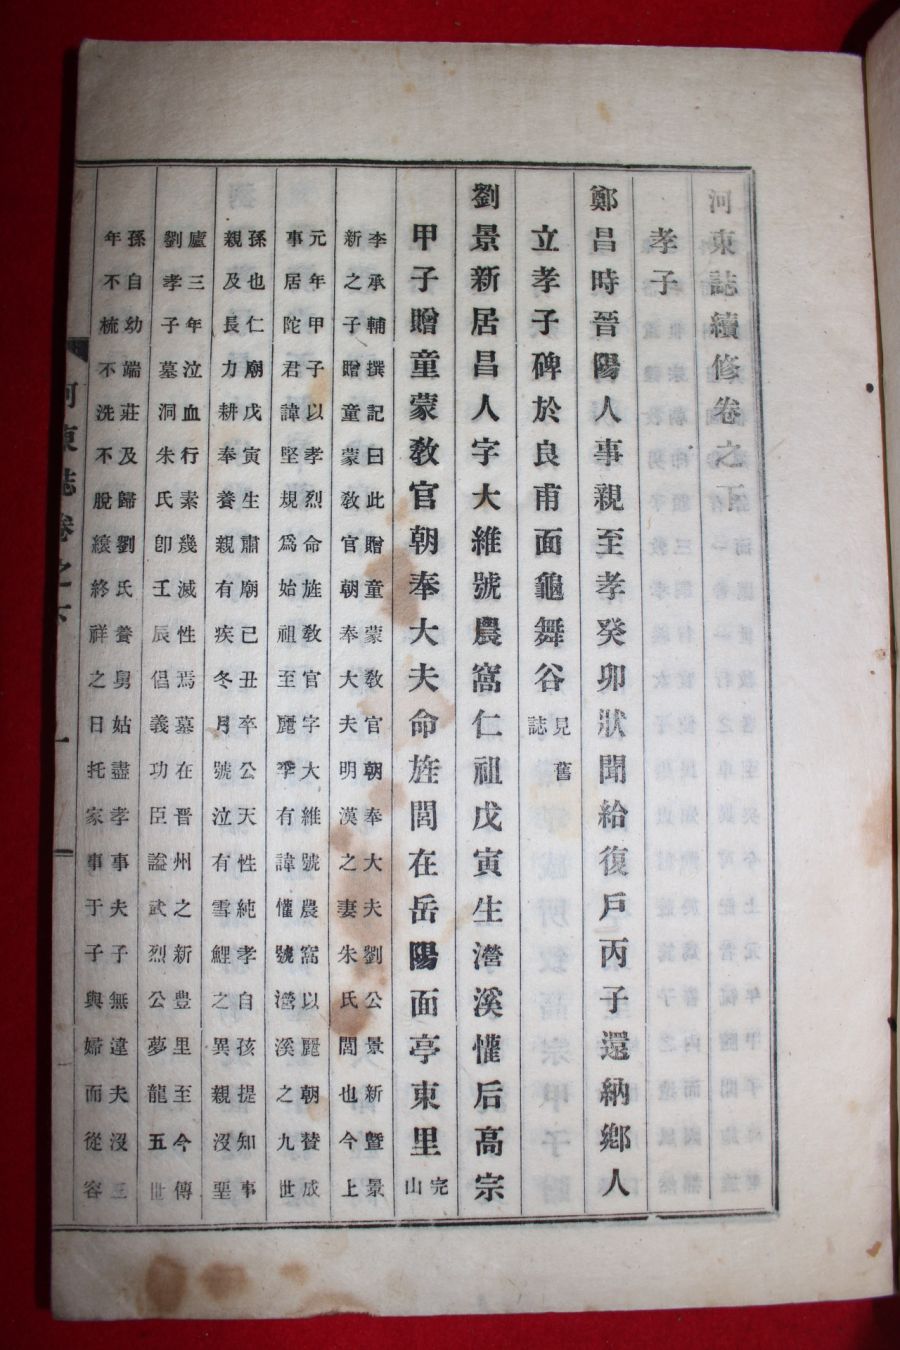 河東誌續修卷之下
孝子
鄭昌時晉陽人事親至孝癸卯狀聞給復戶丙子還納鄉人
立孝子碑於良甫面龜舞谷見舊誌
劉景新居昌人字大維號農窩仁祖戊寅生灊溪懽后高宗
甲子贈童蒙敎官朝奉大夫命旌閭在岳陽面亭東里完山
李承輔撰記曰此贈童蒙敎官朝奉大夫劉公景新暨景
新之子贈童蒙敎官朝奉大夫明漢之妻朱氏閭也今上
元年甲子以孝烈命旌敎官字大維號農窩以麗朝贊成
事居陀君諱堅規爲始祖至麗季有諱懽號灊溪之九世
孫也仁廟戊寅生肅廟己丑卒公天性純孝自孩提知事
親及長力耕奉養親有疾冬月號泣有雪鯉之異親沒堊
廬三年泣血行素幾滅性焉墓在晋州之新豊里至今傳
劉孝子墓洞朱氏卽壬辰倡義功臣謚武烈公夢龍五世
孫自幼端莊及歸劉氏養舅姑盡孝事夫子無違夫沒三
年不梳不洗不脫縗終祥之日托家事于子與婦而從容
河東誌卷之下
一